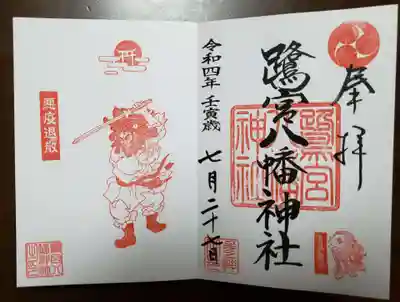 奉拝
鷺宮八幡神社
鷺宮
神社
令和四年 壬寅歳 七月二十七日
悪疫退散